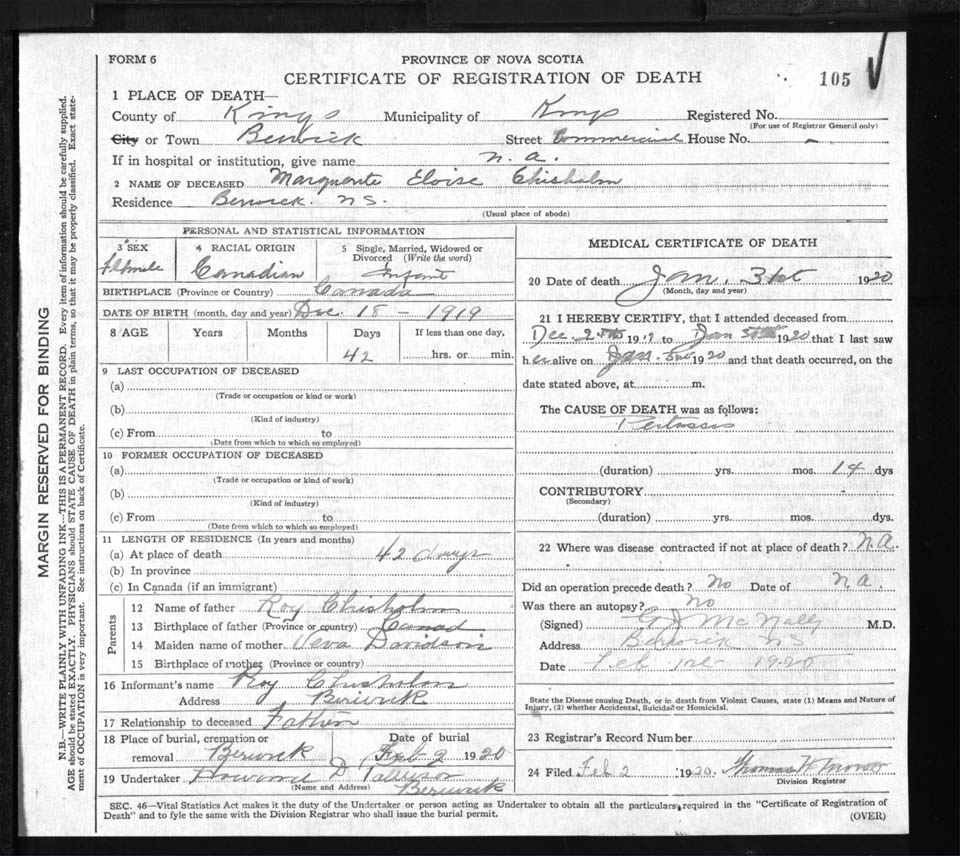 FORM 6
PROVINCE OF NOVA SCOTIA
CERTIFICATE OF REGISTRATION OF DEATH
105
1 PLACE OF DEATH—
County of Kings Municipality of Kings Registered No.
(For use of Registrar General only)
City or Town Berwick Street Commercial House No. -
If in hospital or institution, give name n. a.
2 NAME OF DECEASED Marguerite Eloise Chisholm
Residence Berwick. N.S.
(Usual place of abode)
PERSONAL AND STATISTICAL INFORMATION
3 SEX 4 RACIAL ORIGIN 5 Single, Married, Widowed or
Divorced (Write the word)
Female Canadian Infant
BIRTHPLACE (Province or Country) Canada
DATE OF BIRTH (month, day and year) Dec. 18 - 1919
8 AGE Years Months Days If less than one day,
42 hrs. or min.
9 LAST OCCUPATION OF DECEASED
(a)
(Trade or occupation or kind or work)
(b)
(Kind of industry)
(c) From to
(Date from which to which so employed)
10 FORMER OCCUPATION OF DECEASED
(a)
(Trade or occupation or kind of work)
(b)
(Kind of industry)
(c) From to
(Date from which to which so employed)
11 LENGTH OF RESIDENCE (In years and months)
(a) At place of death 42 days
(b) In province
(c) In Canada (if an immigrant)
Parents
12 Name of father Roy Chisholm
13 Birthplace of father (Province or country) Canad
14 Maiden name of mother Veva Davidson
15 Birthplace of mother (Province or country)
16 Informant's name Roy Chisholm
Address Berwick
17 Relationship to deceased Father
18 Place of burial, cremation or Date of burial
removal Berwick Feb 2 1920
19 Undertaker Howard D
(Name and Address) Berwick
MEDICAL CERTIFICATE OF DEATH
20 Date of death Jan, 31st 1920
(Month, day and year)
21 I HEREBY CERTIFY, that I attended deceased from
Dec. 191 to Jan 1920 that I last saw
her alive on Jan. 1920 and that death occurred, on the
date stated above, at m.
The CAUSE OF DEATH was as follows:
Pertussis
(duration) yrs. mos. 14 dys
CONTRIBUTORY
(Secondary)
(duration) yrs. mos. dys.
22 Where was disease contracted if not at place of death? n a.
Did an operation precede death? No Date of n a.
Was there an autopsy? No
(Signed) McNally M.D.
Address Berwick N S
Date Feb 1920
State the Disease causing Death, or in death from Violent Causes, state (1) Means and Nature of
Injury, (2) whether Accidental, Suicidal or Homicidal.
23 Registrar's Record Number
24 Filed Feb 2 1920. Thomas H
Division Registrar
SEC. 46—Vital Statistics Act makes it the duty of the Undertaker or person acting as Undertaker to obtain all the particulars required in the "Certificate of Registration of
Death" and to fyle the same with the Division Registrar who shall issue the burial permit.
(OVER)
MARGIN RESERVED FOR BINDING
N.B.—WRITE PLAINLY WITH UNFADING INK—THIS IS A PERMANENT RECORD. Every item of information should be carefully supplied.
AGE should be stated EXACTLY. PHYSICIANS should STATE CAUSE OF DEATH in plain terms, so that it may be properly classified. Exact state-
ment of OCCUPATION is very important. See instructions on back of Certificate.